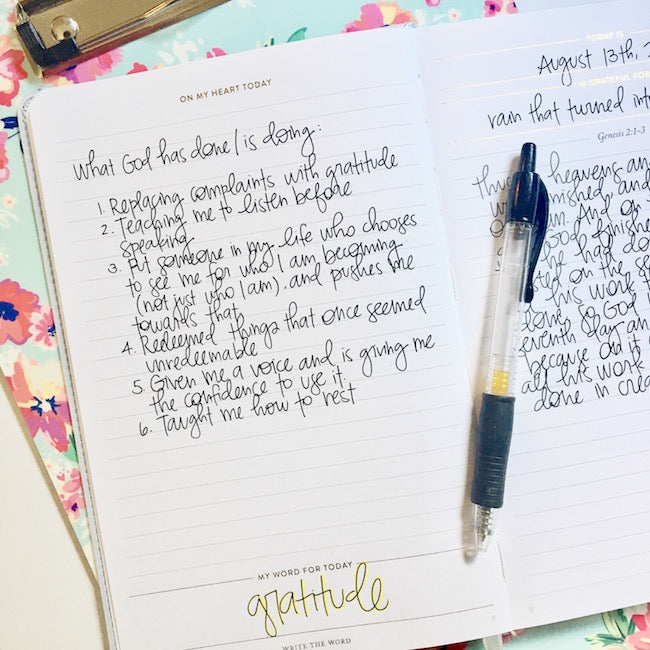 ON MY HEART TODAY
What God has done/is doing:
1. Replacing complaints with gratitude
2. Teaching me to listen before
speaking
3. Put someone in my life who chooses
to see me for who I am becoming
(not just who I am). and pushes me
towards that
4. Redeemed things that once seemed
unredeemable
5. Given me a voice and is giving me
the confidence to use it.
6. Taught me how to rest
MY WORD FOR TODAY
gratitude
WRITE THE WORD
TODAY IS
August 13th,
I'M GRATEFUL FOR
rain that turned
Genesis 2:1-3
thus heavens
finished and
And on
God
he had
on the
this work
done. So God
day
because
all his work
done in